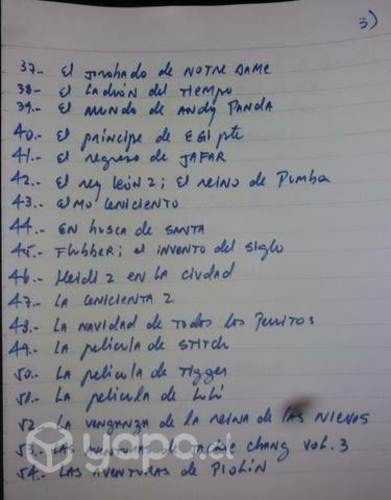 3)
37.- El jorobado de NOTRE DAME
38.- El Ladrón del Tiempo
39.- El mundo de Andy Panda
40.- El príncipe de EGipto
41.- El regreso de JAFAR
42.- El rey león 2; El reino de Pumba
43.- Elmo ceniciento
44.- EN busca de SANTA
45.- Flubber; el invento del siglo
46.- Heidi 2 en la ciudad
47.- La cenicienta 2
48.- La NAVIDAD de Todos los Perritos
49.- La película de Stitch
50.- La película de Tigger
51.- La película de Lilí
52.- La venganza de la reina de las Nieves
53.- LAS AVENTURAS de Jackie Chang Vol. 3
54.- LAS AVENTURAS de PIOLÍN
yapo.cl